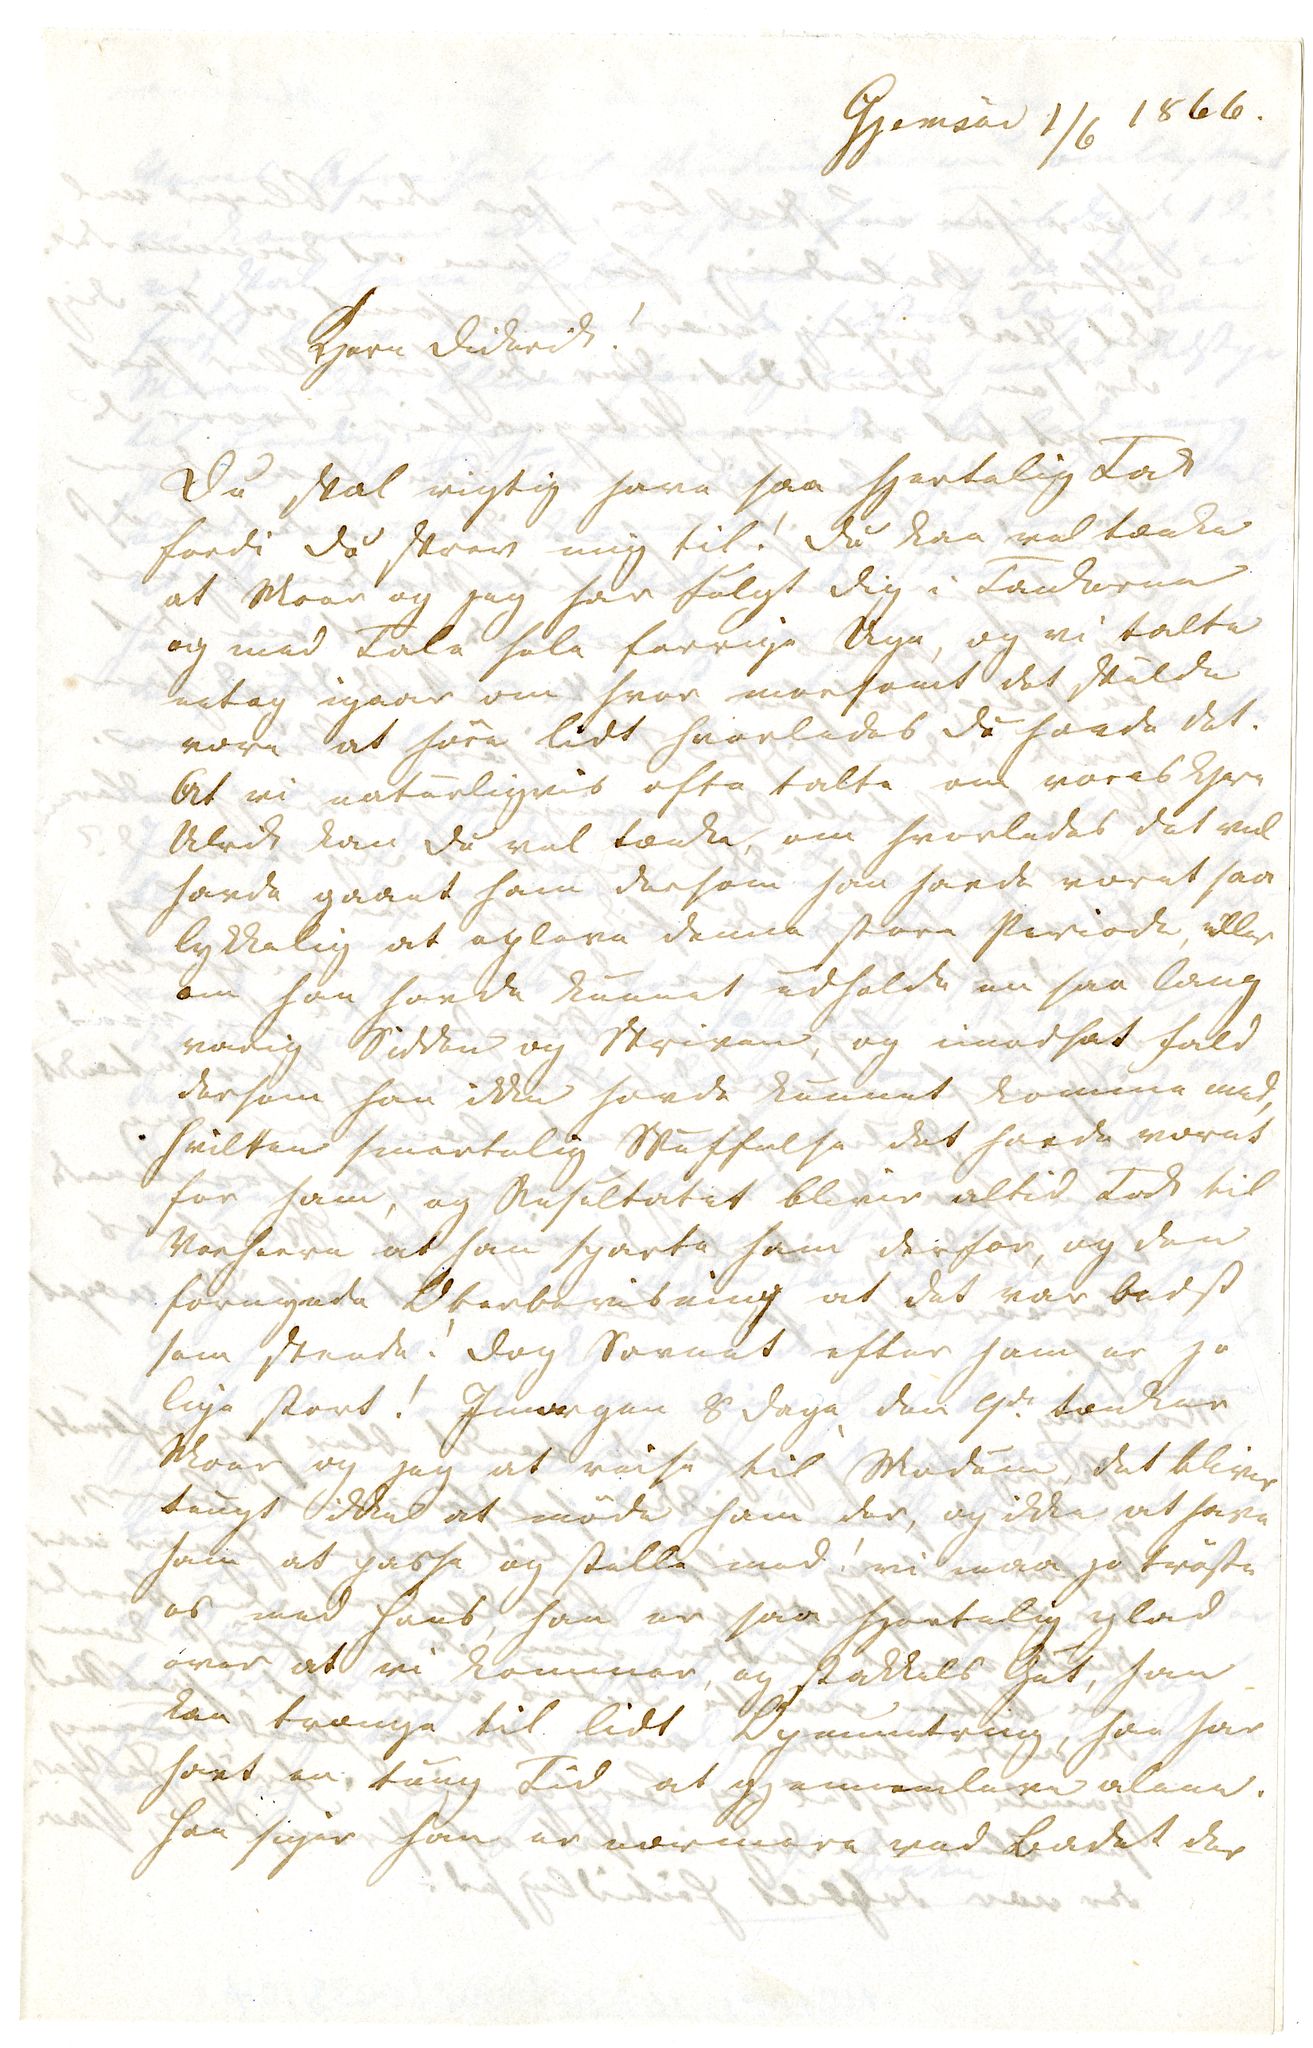 Gjemsöe 1/6 1866.
Kjære Diderik!
Du skal rigtig have saa hjertelig Tak
fordi Du skrev mig til! Du kan vel tænke
at Moer og jeg har fulgt Dig i Tankerne
og med Tale hele forrige Uge, og vi talte
netop igaar om hvor morsomt det skulde
være at höre lidt hvorledes Du havde det.
At vi naturligvis ofte talte om vores kjære
Ulrik kan Du vel tænke, om hvorledes det vel
havde gaaet ham dersom han havde været saa
lykkelig at opleve denne store Periode, eller
om han havde kunnet udholde en saa lang
varig Sidden og Skriven, og imodsat fald
dersom han ikke havde kunnet komme med,
hvilken smertelig Skuffelse det havde været
for ham, og Resultatet bliver altid Tak til
Vorherre at han sparte ham derfor, og den
fornyede Overbevisning at det var bedst
som skeede! Dog Savnet efter ham er jo
lige stort! Imorgen 8 Dage, den 9de tænker
Moer og jeg at reise til Modum, det bliver
tungt ikke at möde ham der, og ikke at have
ham at passe og stelle med! vi maa jo tröste
os med Hans, han er saa hjertelig glad
over at vi kommer, og stakkels Gut, han
kan trænge til lidt Opmuntring, han har
havt en tung Tid at gjennemleve alene.
Han siger han er nærmere ved Badet der